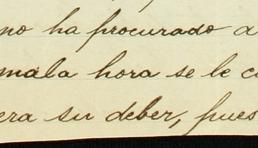 no ha procurado a
mala hora se le c
era su deber, pues